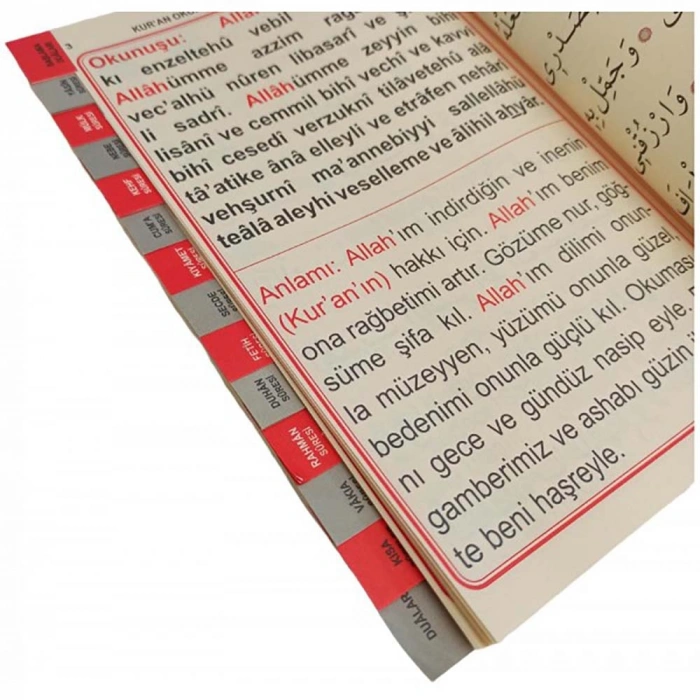 KUR'AN OKU
Okunuşu: Alla
kı enzeltehû vebil
Allâhümme azzim rağ
vec'alhü nûren libasarî ve şi
li sadrî. Allâhümme zeyyin bihi
lisânî ve cemmil bihî vechî ve kavvi
bihî cesedî verzuknî tilâvetehû alâ
tâ'atike ânâ elleyli ve etrâfen nehâri
vehşurnî ma'annebiyyi sallellâhü
teâlâ aleyhi veselleme ve âlihil ahyâr.
Anlamı: Allah'ım indirdiğin ve inenin
(Kur'an'ın) hakkı için. Allah'ım benim
ona rağbetimi artır. Gözüme nur, göğ-
süme şifa kıl. Allah'ım dilimi onun-
la müzeyyen, yüzümü onunla güzel
bedenimi onunla güçlü kıl. Okuması
nı gece ve gündüz nasip eyle
gamberimiz ve ashabı güzin
te beni haşreyle.
YÂSÎN
MÜLK
SÛRESİ
NEBE
KEHF
SÛRESİ
CUM'A
SÛRESİ
KIYÂMET
SECDE
FETİH
DUHAN
SÛRESİ
RAHMAN
SÛRESİ
VAKIA
KISA
DUALAR
وَجَمِّلْ بِهِ
وَارْزُقْنِي